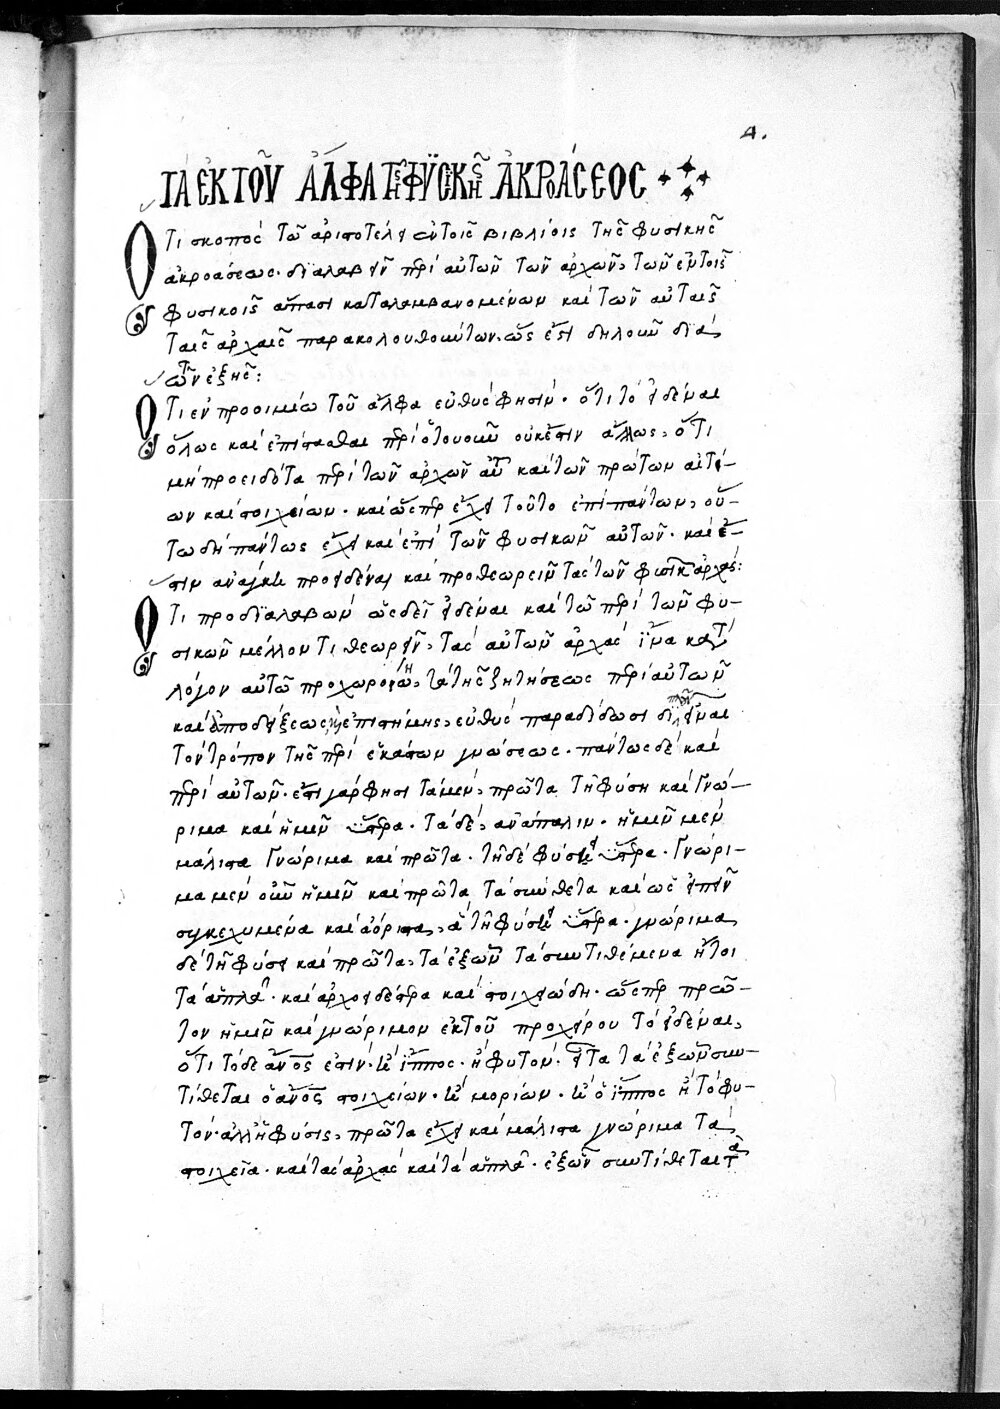 4.
ΤΑ ἐΚ ΤΟῦ ἄΛΦΑ ΤῆΣ ΦΥΣΙΚῆΣ ἀΚΡΟΆΣΕΟΣ
Ὅτι σκοπὸς τῶ ἀριστοτέλει ἐν τοῖς βιβλίοις τῆς φυσικῆς
ἀκροάσεως· διαλαβεῖν περὶ αὐτῶν τῶν ἀρχῶν, τῶν ἐν τοῖς
φυσικοῖς ἅπασι καταλαμβανομένων καὶ τῶν αὐταῖς
ταῖς ἀρχαῖς παρακολουθούντων. ὥς ἐστι δηλοῦν διὰ
τῶν ἑξῆς:
Ὅτι ἐν προοιμίω τοῦ ἄλφα εὐθύς φησιν· ὅτι τὸ εἰδέναι
ὅλως καὶ ἐπίστασθαι περὶ ὁτουοῦν οὐκ ἔστιν ἄλλως, ὅτι
μὴ προειδότα περὶ τῶν ἀρχῶν αὐτῶν καὶ τῶν πρώτων αἰτί-
ων καὶ στοιχείων· καὶ ὥσπερ ἔχει τοῦτο ἐπὶ πάντων, οὕ-
τω δὴ πάντως ἔχει καὶ ἐπὶ τῶν φυσικῶν αὐτῶν· καὶ ἔ-
στιν ἀνάγκη προειδέναι καὶ προθεωρεῖν τὰς τῶν φυσικῶν ἀρχάς:
Ὅτι προδιαλαβὼν ὡς δεῖ εἰδέναι καὶ τῶ περὶ τῶν φυ-
σικῶν μέλλοντι θεωρεῖν, τὰς αὐτῶν ἀρχὰς ἵνα κατὰ
λόγον αὐτῶ προχωροίη τὰ τῆς ζητήσεως περὶ αὐτῶν
καὶ ἀποδείξεως καὶ ἐπιστήμης, εὐθὺς παραδίδωσι
τὸν τρόπον τῆς περὶ ἑκάστων γνώσεως· πάντως δὲ καὶ
περὶ αὐτῶν· ἔστι γάρ φησι τὰ μὲν, πρῶτα τῆ φύσει καὶ γνώ-
ριμα καὶ ἡμῖν ὕστερα· τὰ δὲ, ἀνάπαλιν· ἡμῖν μὲν
μάλιστα γνώριμα καὶ πρῶτα· τῆ δὲ φύσει ὕστερα· γνώρι-
μα μὲν οὖν ἡμῖν καὶ πρῶτα τὰ σύνθετα καὶ ὡς εἰπεῖν
συγκεχυμένα καὶ ἀόριστα, ἃ τῆ φύσει ὕστερα· γνώριμα
δὲ τῆ φύσει καὶ πρῶτα, τὰ ἐξ ὧν τὰ συντιθέμενα ἤτοι
τὰ ἁπλᾶ· καὶ ἀρχοειδέστερα καὶ στοιχειώδη· ὥσπερ πρῶ-
τον ἡμῖν καὶ γνώριμον ἐκ τοῦ προχείρου τὸ εἰδέναι,
ὅτι τόδε ἄνος ἐστίν· καὶ ἵππος· ἢ φυτόν· εἶτα τὰ ἐξ ὧν συν-
τίθεται ὁ ἄνος στοιχείων· καὶ μορίων· καὶ ὁ ἵππος ἢ τὸ φυ-
τόν· ἀλλ' ἡ φύσις, πρῶτα ἔχει καὶ μάλιστα γνώριμα τὰ
στοιχεῖα· καὶ τὰς ἀρχὰς καὶ τὰ ἁπλᾶ· ἐξ ὧν συντίθεται τὰ